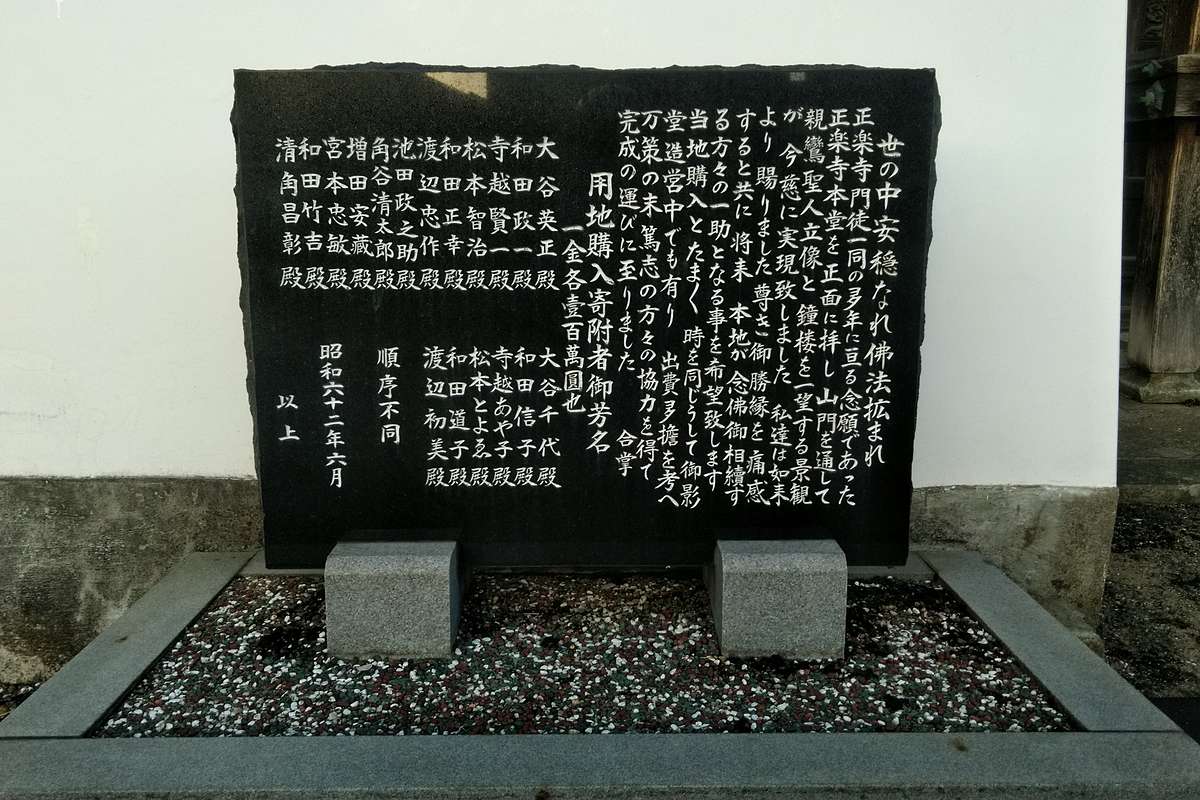 世の中安穏なれ佛法拡まれ
正楽寺門徒一同の多年に亘る念願であった
正楽寺本堂を正面に拝し 山門を通して
親鸞聖人立像と鐘楼を一望する景観
が 今慈に実現致しました 私達は如来
より 賜りました 尊き御勝縁を痛感
すると共に 将来 本地が念佛御相續す
る方々の一助となる事を希望致します
当地購入とたまく 時を同じうして御影
堂造営中でも有り 出費多擔を考へ
万策の末 篤志の方々の協力を得て
完成の運びに至りました 合掌
用地購入寄附者御芳名
一金各壹百萬圓也
大谷英正殿
和田政一殿
寺越賢一殿
松本智治殿
和田正幸殿
渡辺忠作殿
池田政之助殿
角谷清太郎殿
増田安藏殿
宮本忠敏殿
和田竹吉殿
清角昌彰殿
大谷千代殿
和田信子殿
寺越あや子殿
松本とよゑ殿
和田道子殿
渡辺初美殿
順序不同
昭和六十二年六月
以上